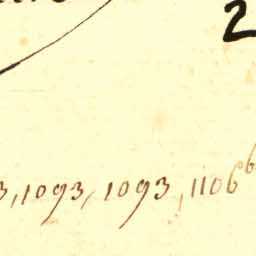 2
3, 1093, 1093, 1106 b